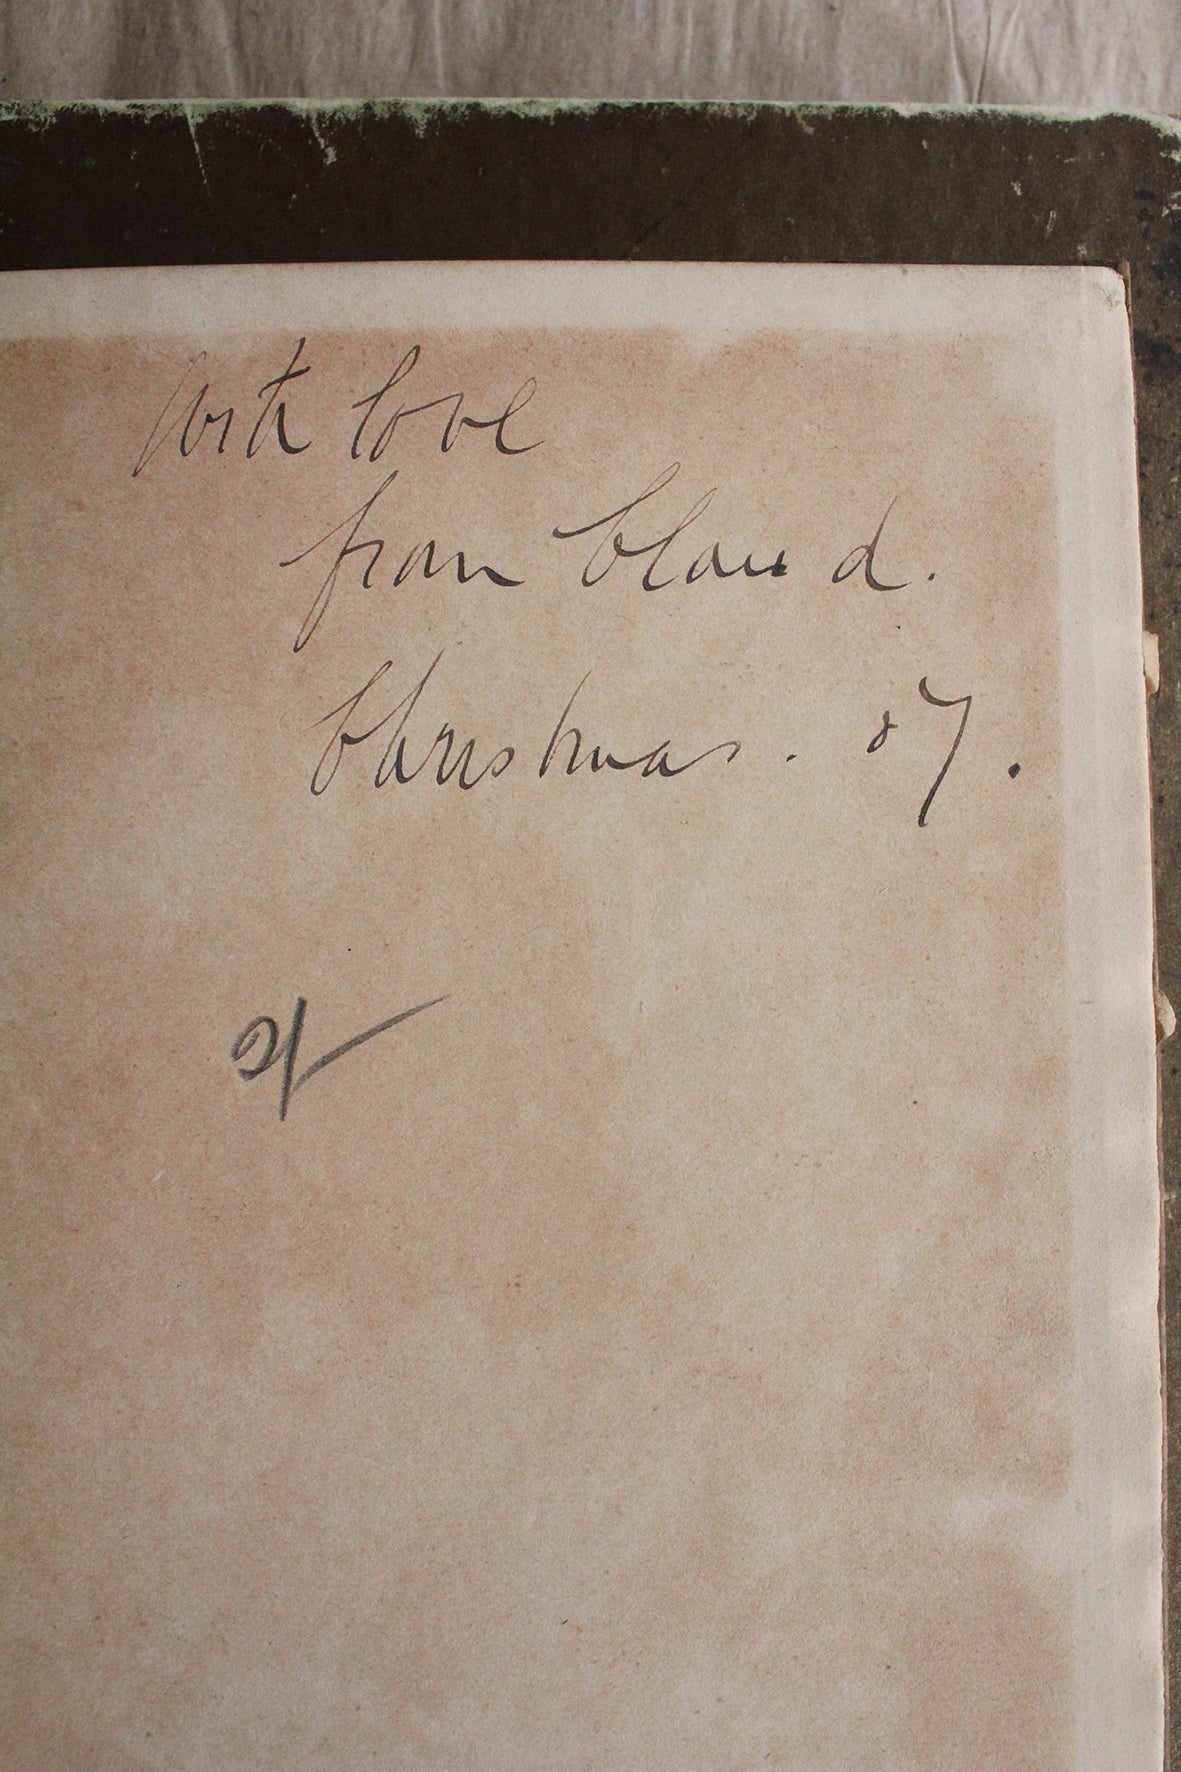 With love
from Claud.
Christmas. 07.